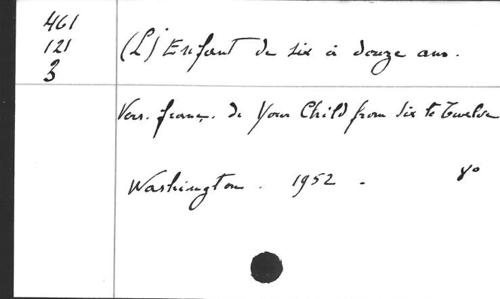 461
121
3
(L') Enfant de six à douze ans.
Vers. franç. de Your Child from Six to Twelve
Washington. 1952. 8°